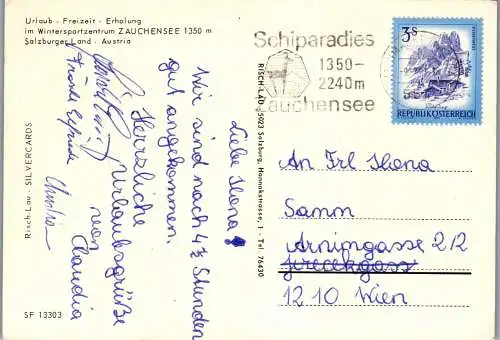 Urlaub - Freizeit - Erholung
im Wintersportzentrum ZAUCHENSEE 1350 m
Salzburger Land - Austria
Schiparadies
1350-
2240m
Zauchensee
3S
REPUBLIK ÖSTERREICH
Liebe Ilona!
Wir sind nach 4½ Stunden
gut angekommen.
Herzliche
Urlaubsgrüße
von
Claudia
Christa
An Frl Ilona
Samm
Arnimgasse 2/2
1210 Wien
Risch-Lau - SILVERCARDS
RISCH-LAU, 5023 Salzburg, Hannakstrasse, 1 - Tel. 76430
SF 13303